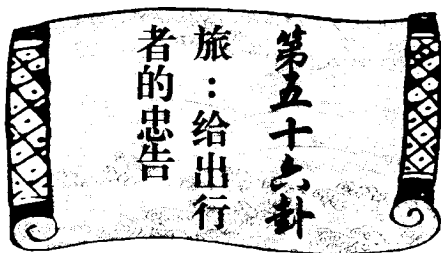 第五十六卦
旅:给出行
者的忠告